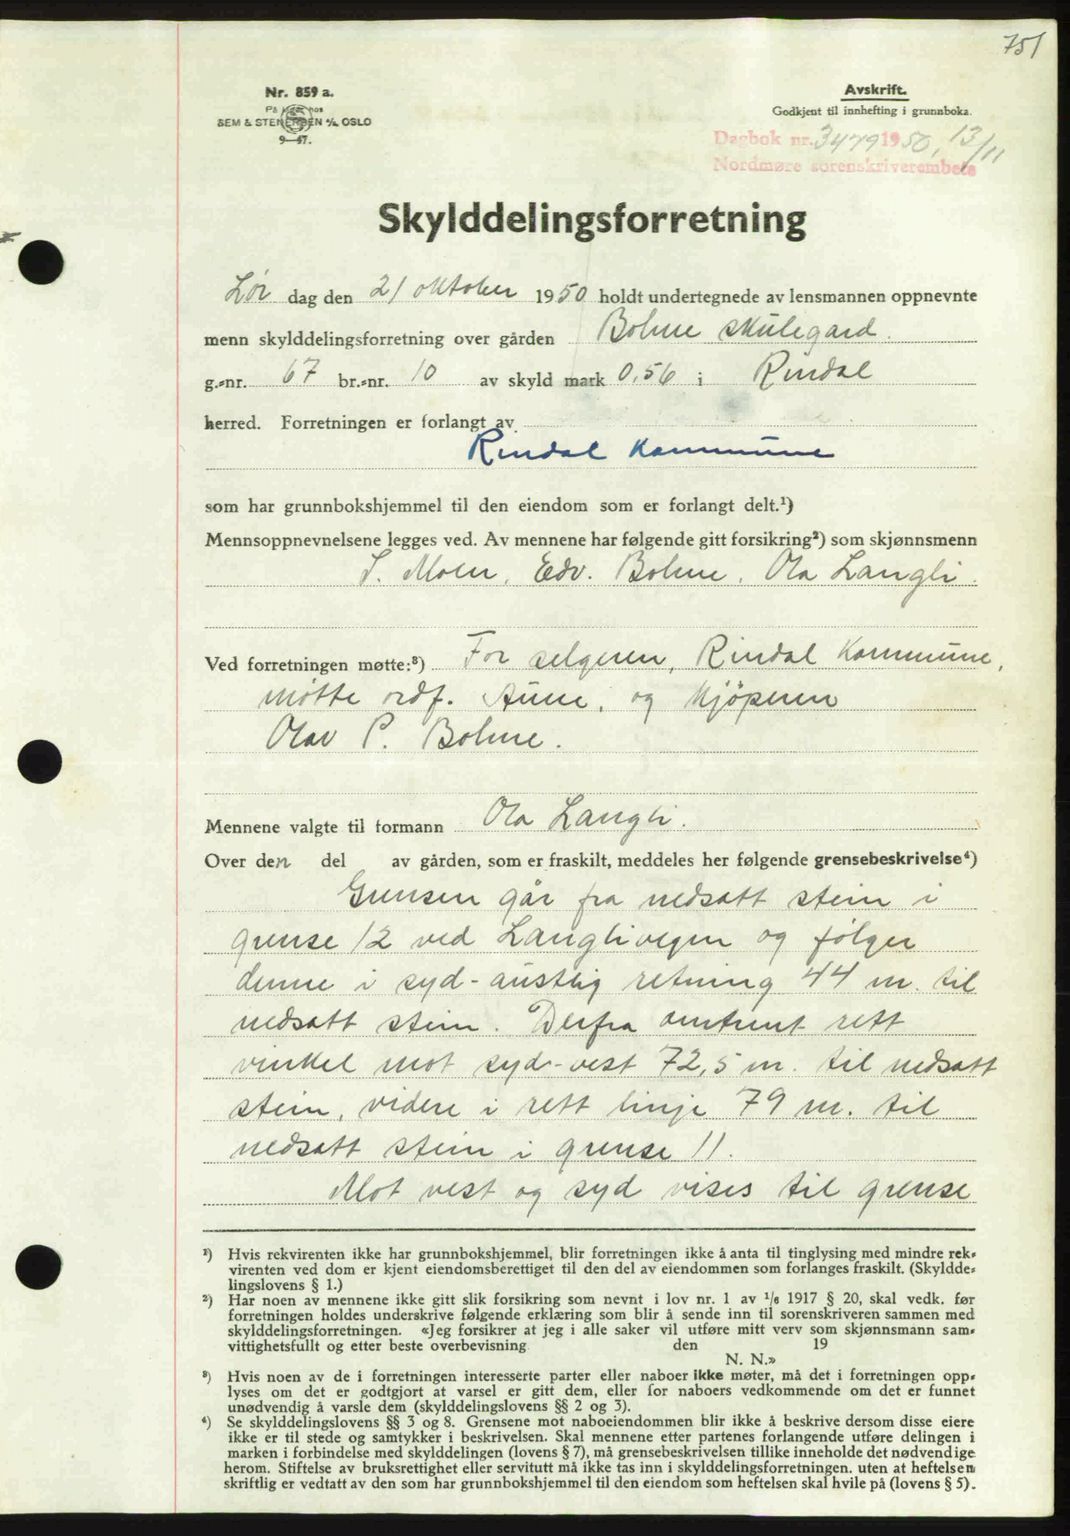 751
Nr. 859 a.
På lager hos
SEM & STENERSEN A/S OSLO
9—47.
Avskrift.
Godkjent til innhefting i grunnboka.
Dagbok nr. 3479 1950, 13/11
Nordmøre sorenskriverembete
Skylddelingsforretning
Lør dag den 21 oktober 1950 holdt undertegnede av lensmannen oppnevnte
menn skylddelingsforretning over gården Bolme skulegard.
g.-nr. 67 br.-nr. 10 av skyld mark 0,56 i Rindal
herred. Forretningen er forlangt av
Rindal kommune
som har grunnbokshjemmel til den eiendom som er forlangt delt.¹)
Mennsoppnevnelsene legges ved. Av mennene har følgende gitt forsikring²) som skjønnsmenn
S. Moen, Edv. Bolme, Ola Langli.
Ved forretningen møtte:³) For selgeren, Rindal kommune,
møtte ordf. Aune, og kjøperen
Olav P. Bolme.
Mennene valgte til formann Ola Langli.
Over den del av gården, som er fraskilt, meddeles her følgende grensebeskrivelse⁴)
Grensen går fra nedsatt stein i
grense 12 ved Langlivegen og følger
denne i syd-austlig retning 44 m. til
nedsatt stein. Derfra omtrent rett
vinkel mot syd-vest 72,5 m. til nedsatt
stein, videre i rett linje 79 m. til
nedsatt stein i grense 11.
Mot vest og syd vises til grense
¹) Hvis rekvirenten ikke har grunnbokshjemmel, blir forretningen ikke å anta til tinglysing med mindre rek-
virenten ved dom er kjent eiendomsberettiget til den del av eiendommen som forlanges fraskilt. (Skyldde-
lingslovens § 1.)
²) Har noen av mennene ikke gitt slik forsikring som nevnt i lov nr. 1 av 1/6 1917 § 20, skal vedk. før
forretningen holdes underskrive følgende erklæring som blir å sende inn til sorenskriveren sammen med
skylddelingsforretningen. «Jeg forsikrer at jeg i alle saker vil utføre mitt verv som skjønnsmann sam-
vittighetsfullt og etter beste overbevisning den 19
N. N.»
³) Hvis noen av de i forretningen interesserte parter eller naboer ikke møter, må det i forretningen opp-
lyses om det er godtgjort at varsel er gitt dem, eller for naboers vedkommende om det er funnet
unødvendig å varsle dem (skylddelingslovens §§ 2 og 3).
⁴) Se skylddelingslovens §§ 3 og 8. Grensene mot naboeiendommen blir ikke å beskrive dersom disse eiere
ikke er til stede og samtykker i beskrivelsen. Skal mennene etter partenes forlangende utføre delingen i
marken i forbindelse med skylddelingen (lovens § 7), må grensebeskrivelsen tillike inneholde det nødvendige
herom. Stiftelse av bruksrettighet eller servitutt må ikke tas inn i skylddelingsforretningen. uten at heftelsen
skriftlig er vedtatt av den som har grunnbokshjemmel til den eiendom som heftelsen skal hvile på (lovens § 5).